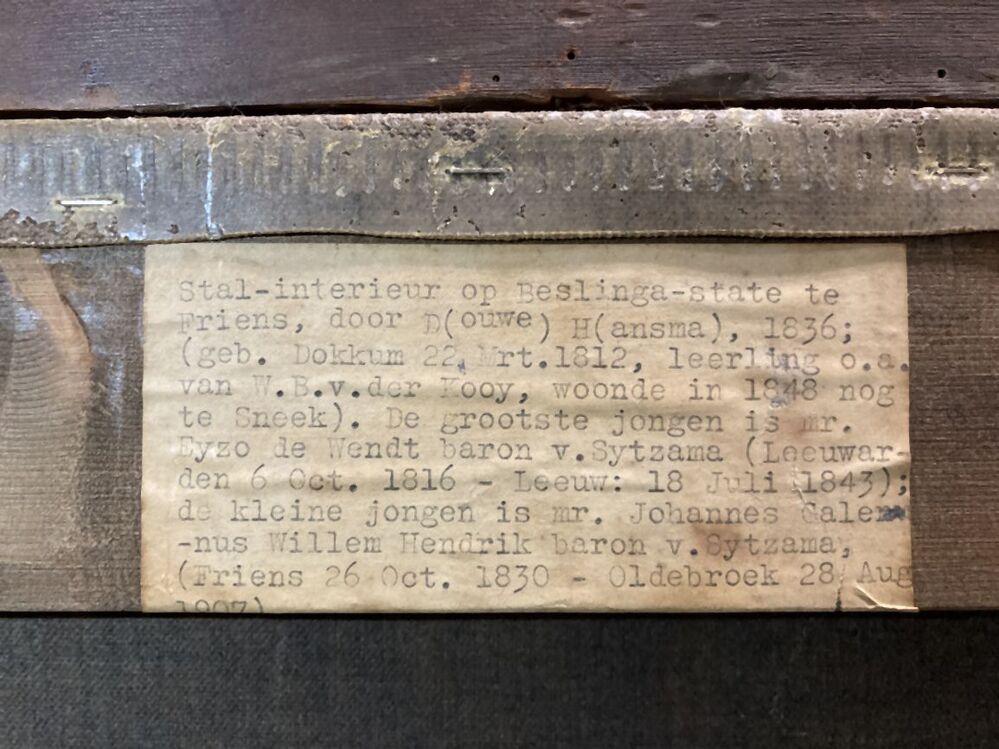 Stal-interieur op Beslinga-state te
Friens, door D(ouwe) H(ansma), 1836;
(geb. Dokkum 22 Mrt.1812, leerling o.a.
van W.B.v.der Kooy, woonde in 1848 nog
te Sneek). De grootste jongen is mr.
Eyzo de Wendt baron v.Sytzama (Leeuwar-
den 6 Oct. 1816 - Leeuw: 18 Juli 1843);
de kleine jongen is mr. Johannes Galem
-nus Willem Hendrik baron v.Sytzama,
(Friens 26 Oct. 1830 - Oldebroek 28 Aug
1907)